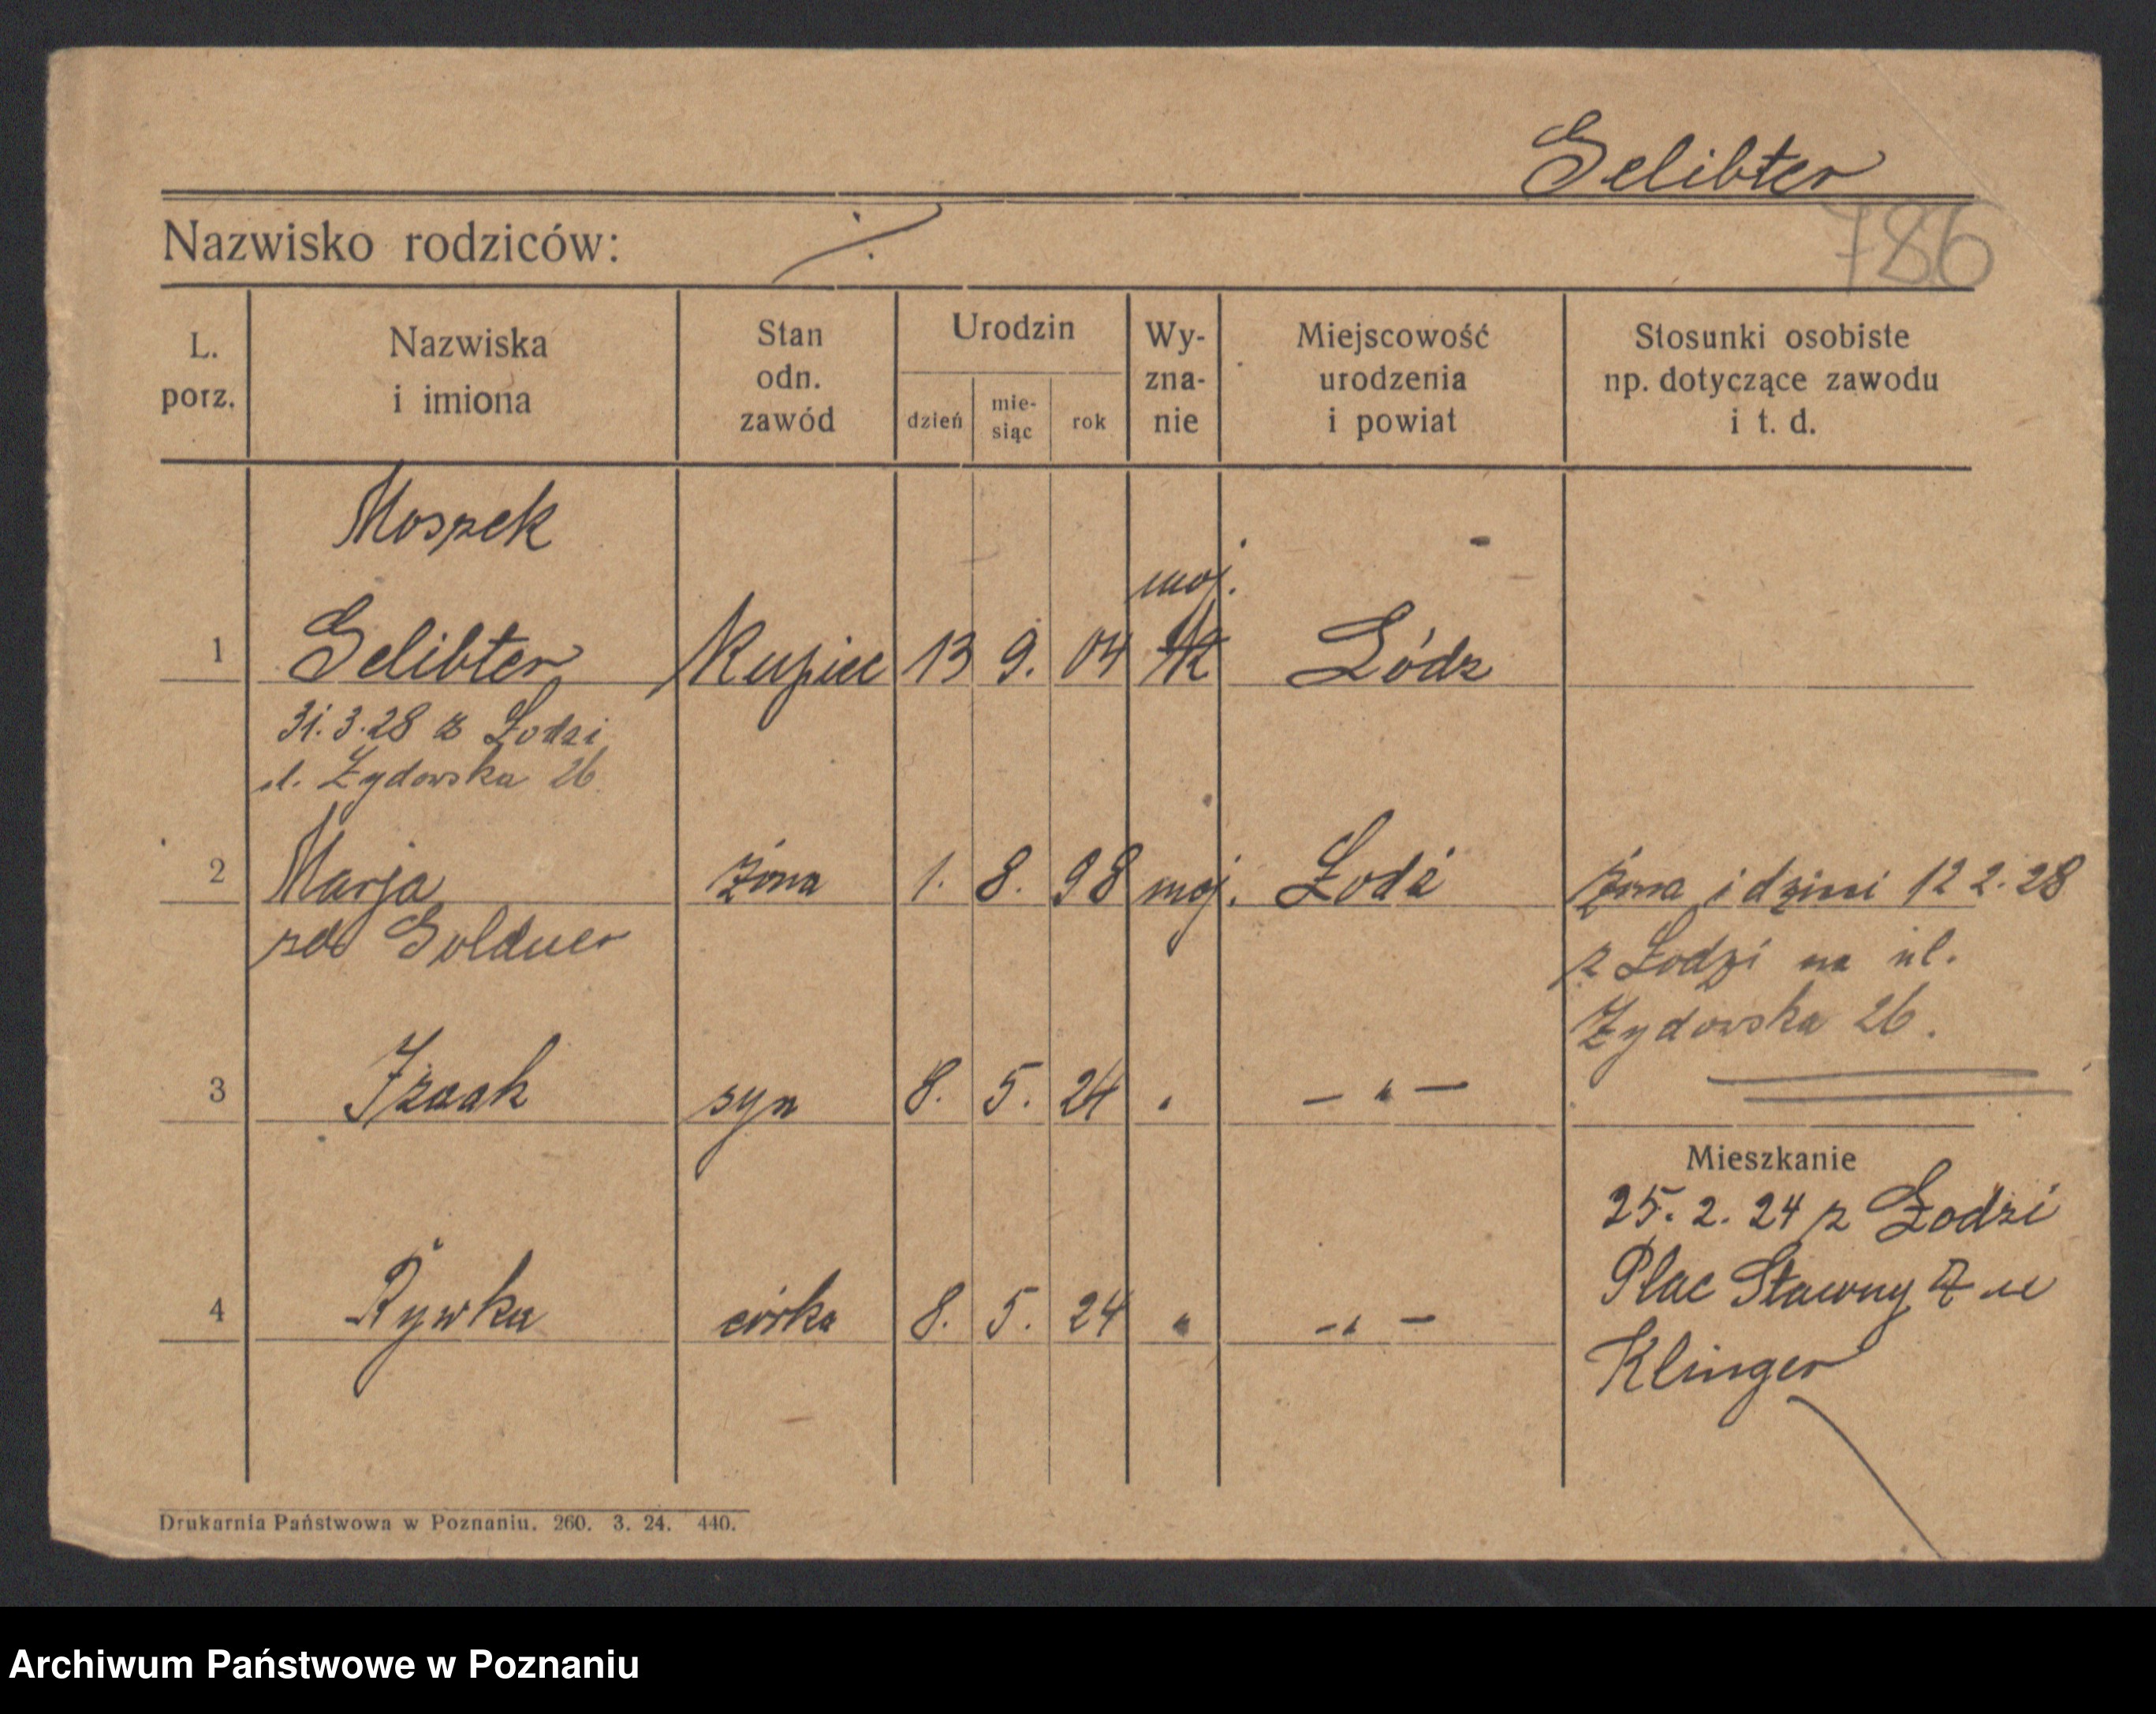 Gelibter
Nazwisko rodziców: ./.
786
L. porz.
Nazwiska i imiona
Stan odn. zawód
Urodzin
dzień
mie-
siąc
rok
Wy-
zna-
nie
Miejscowość urodzenia i powiat
Stosunki osobiste
np. dotyczące zawodu
i t. d.
Moszek
moj.
1 Gelibter Kupiec 13 9. 04 Łódz
31.3.28 z Łodzi
ul. Żydowska 26
2 Marja żona 1. 8. 98 moj. Łodź
zd Goldner
żona i dzieci 12 2. 28
z Łodzi na ul.
Żydowska 26.
3 Izaak syn 8. 5. 24 " — " —
4 Rywka córka 8. 5. 24 " — " —
Mieszkanie
25. 2. 24 z Łodzi
Plac Stawny 7 u
Klinger
Drukarnia Państwowa w Poznaniu. 260. 3. 24. 440.
Archiwum Państwowe w Poznaniu